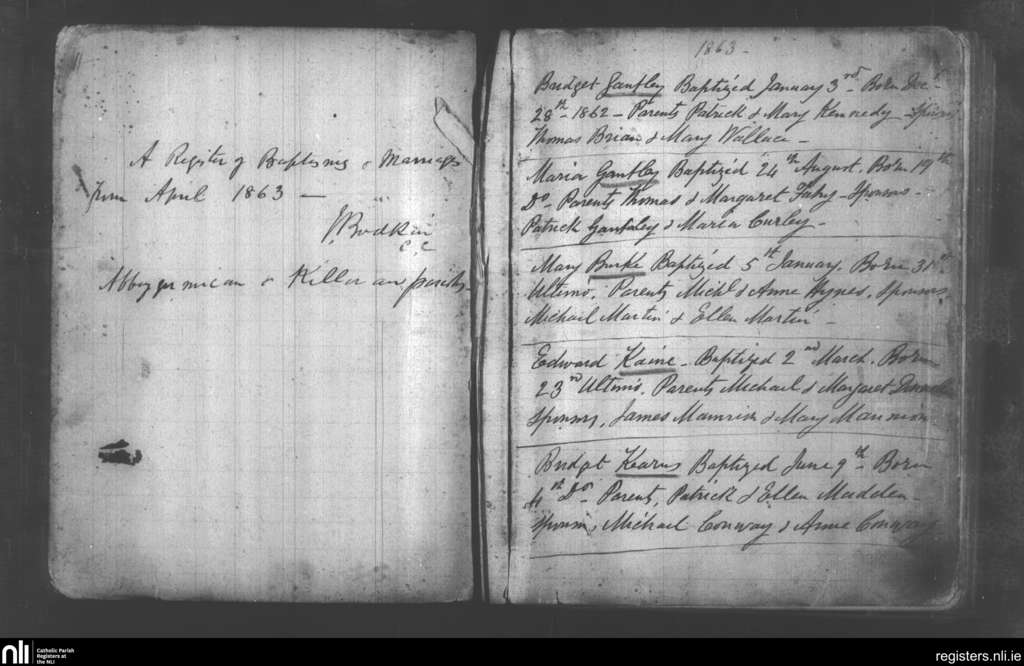 A Register of Baptisms & Marriages
From April 1863 —
J Bodkin
C. C
Abbeygormican & Killoran parishes
1863 -
Bridget Gantley Baptized January 3rd - Born Dec -
28th - 1862 - Parents Patrick & Mary Kennedy - Sponsors
Thomas Brian & Mary Wallace -
Maria Gantley Baptized 24th August. Born 19th
Do - Parents Thomas & Margaret Fahy - Sponsors -
Patrick Gantley & Maria Curley -
Mary Burke Baptized 5th January. Born 31st
Ultimo. Parents Michl & Anne Hynes. Sponsors
Michael Martin & Ellen Martin -
Edward Kaine - Baptized 2nd March. Born
23rd Ultimo. Parents Michael & Margaret
Sponsors, James & Mary
Bridget Kearns Baptized June 9th - Born
4th Do - Parents, Patrick & Ellen Madden -
Sponsors, Michael Conway & Anne Conway
nli
Catholic Parish
Registers at
the NLI
registers.nli.ie